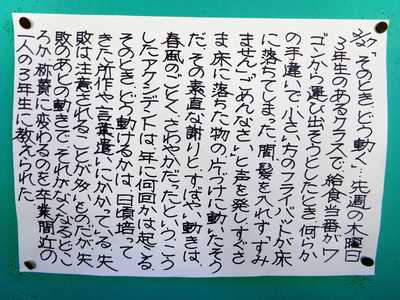 「そのとき、どう動く…先週の木曜日
3年生のあるクラスで給食当番がワ
ゴンから運び出そうとしたとき、何らか
の手違いで、のフライバットが床
に落ちてしまった。間、髪を入れず、すみ
ません、ごめんなさい。」と声を発し、すぐさ
ま床に落ちた物の片づけに動いたそう
だ。その素直な謝りと、すばやい動きは、
春風のごとく、さわやかだったという。こう
したアクシデントは、年に何回かは起こる。
そのとき、どう動けるかは、日頃培って
きた所作や言葉遣いにかかっている。失
敗は注意されることが多いのだが、失
敗のあとの動きで、それがなくなるどこ
ろか、称賛に変わるのを卒業間近の
一人の3年生に教えられた。